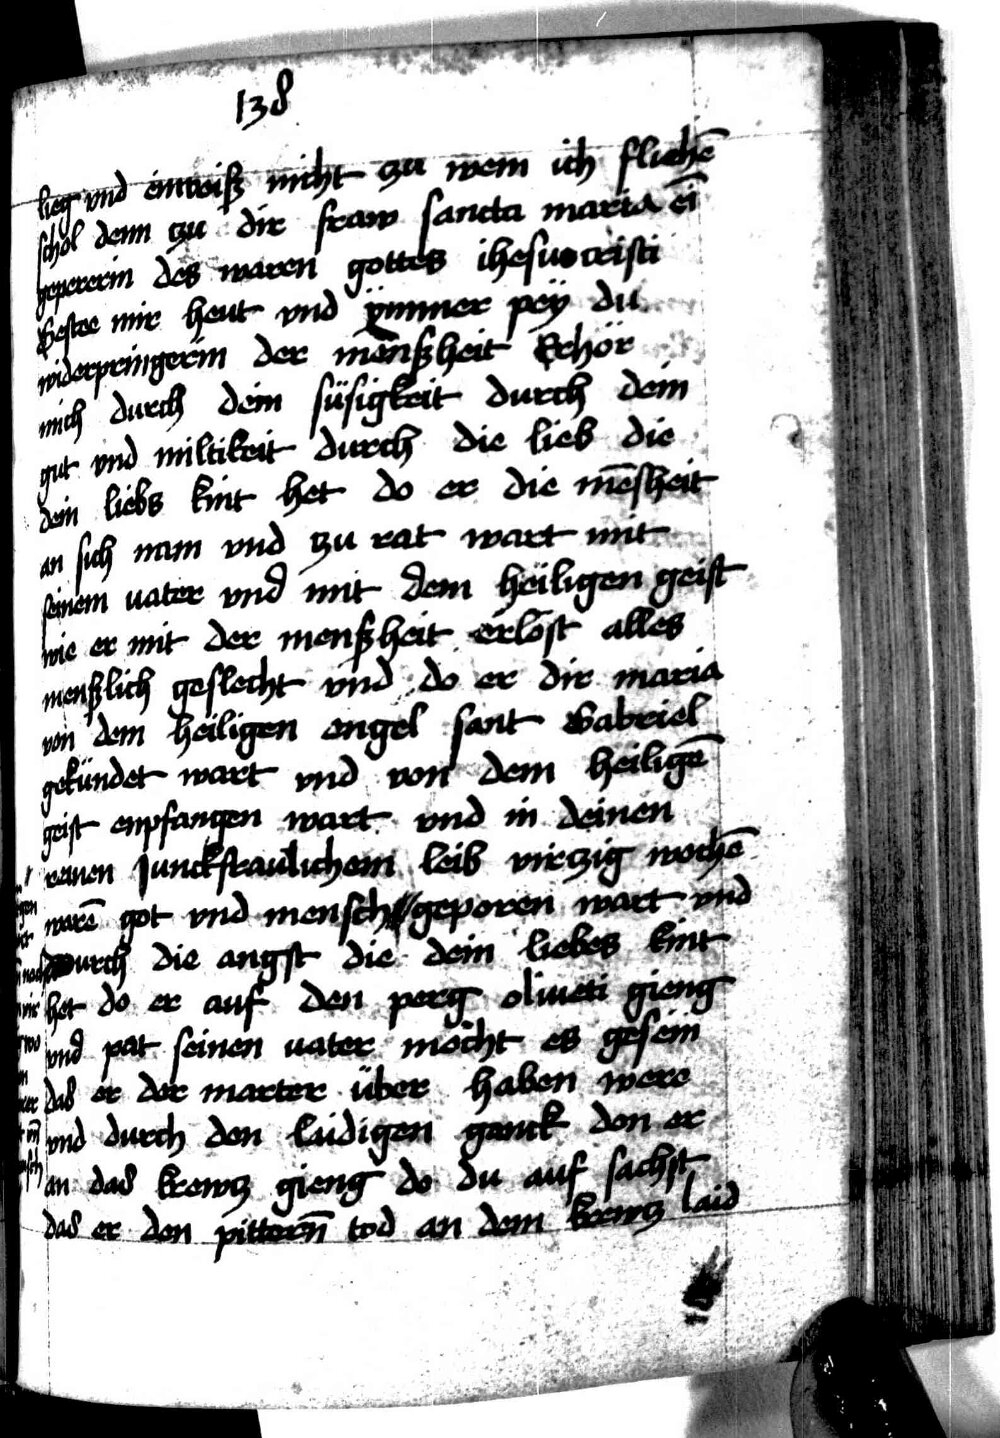 138
lieg vnd enwaiß nicht zu wem ich fliehē
schol denn zu dir fraw sancta maria ei
gepererin des waren gottes ihesu cristi
Gestee mir heut vnd ÿmmer peÿ du
widerpringerin der menßheit Erhör
mich durch dein süsigkeit durch dein
gut vnd miltikeit durch die lieb die
dein liebs kint het do er die mēsheit
an sich nam vnd zu rat wart mit
seinem uater vnd mit dem heiligen geist
wie er mit der menßheit erlöst alles
menßlich geslecht vnd do er dir maria
von dem heiligen engel sant Gabriel
gekündet wart vnd von dem heiligē
geist enpfangen wart vnd in deinen
reinen Junckfraulichem leib virtzig wochē
warē got vnd mensch geporen wart vnd
durch die angst die dein liebes kint
het do er auf den perg oliueti gieng
vnd pat seinen uater möcht es gesein
das er der marter über haben were
vnd durch den laidigen ganck den er
an das krewtz gieng do du auf sachst
das er den pittern̄ tod an dem krewtz laid